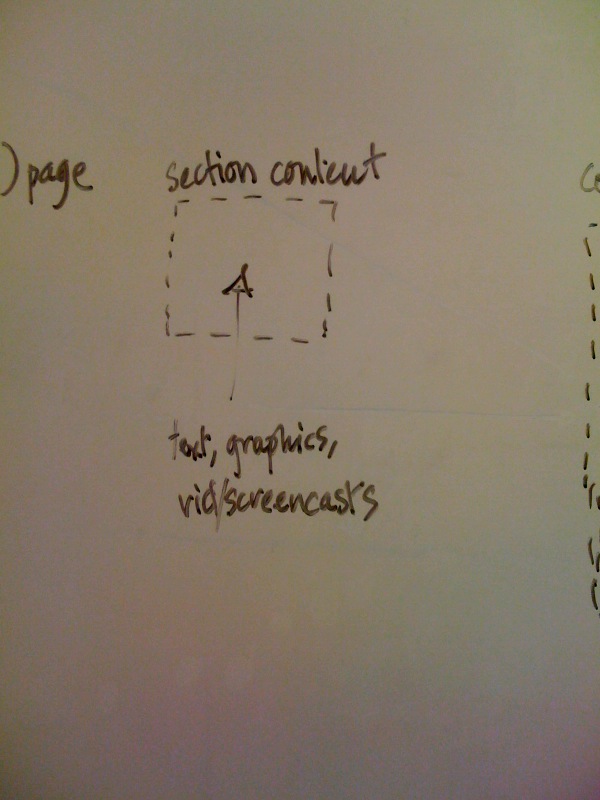 ) page
section content
text, graphics,
vid/screencasts